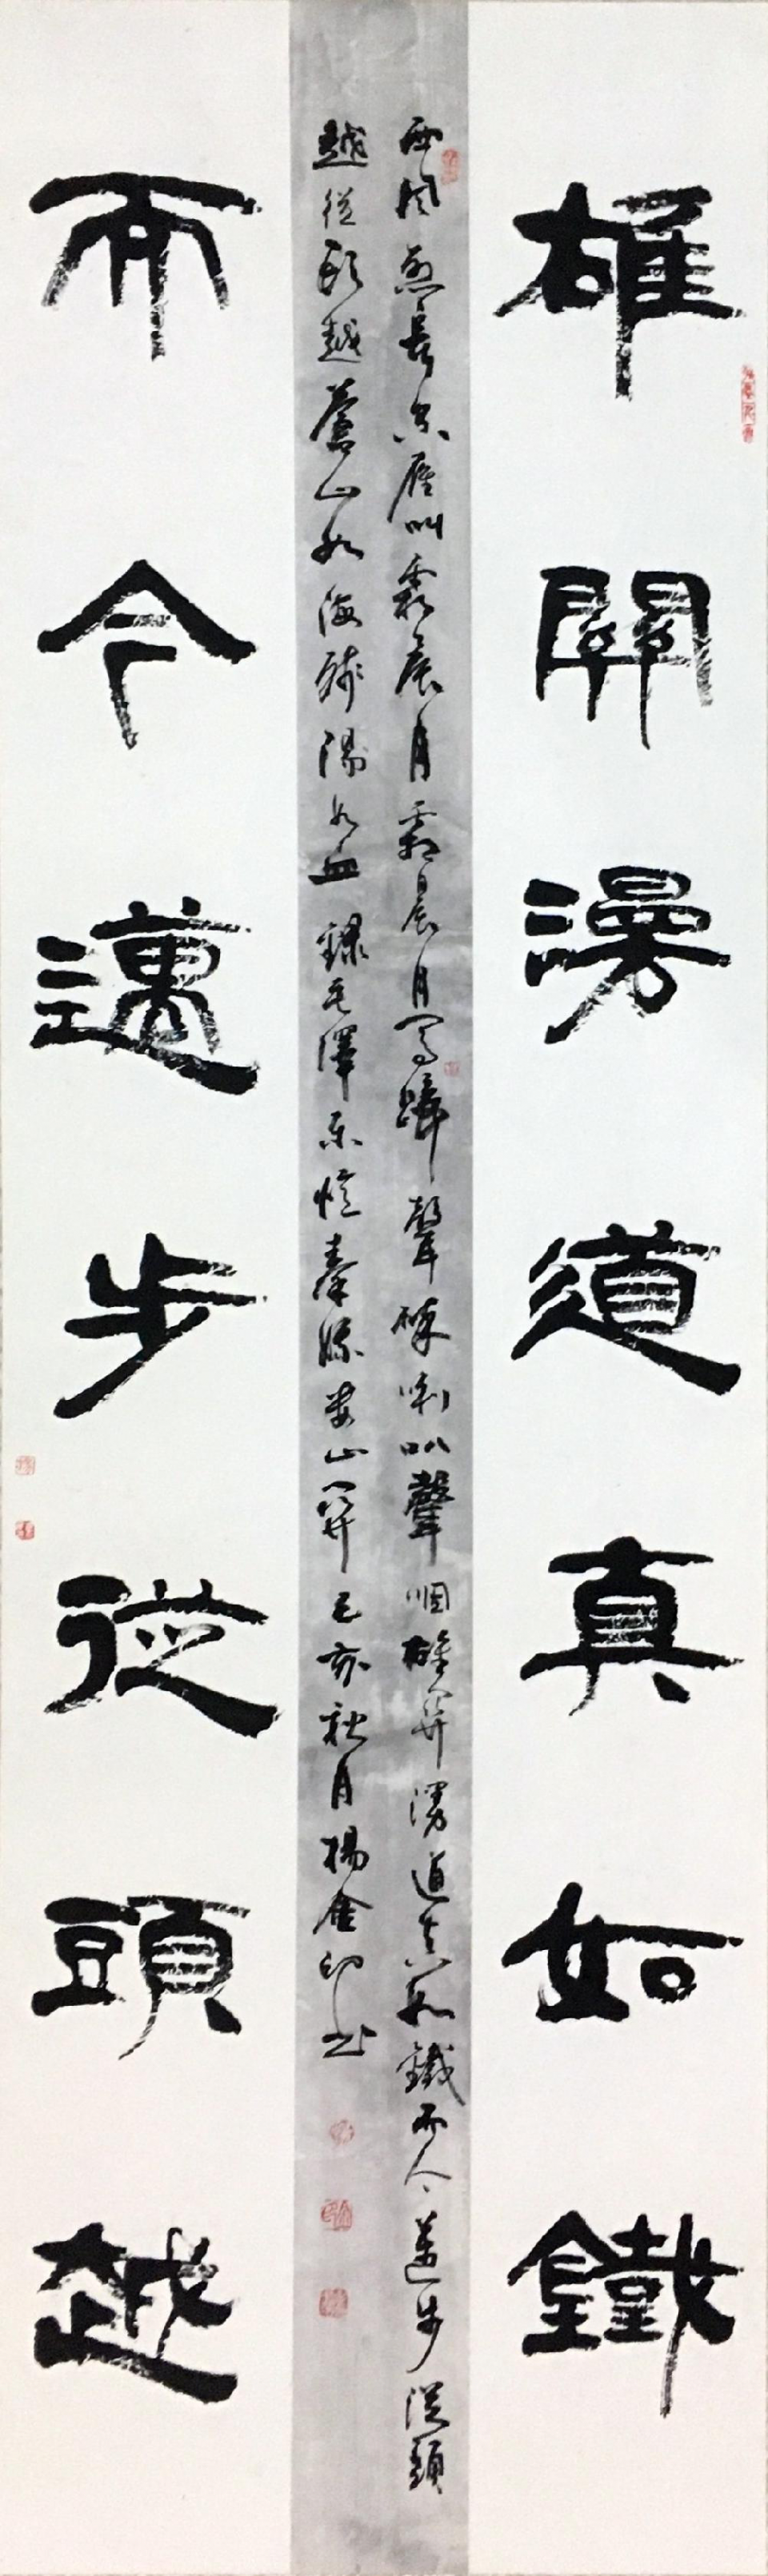 雄關漫道真如鐵
西風烈長空雁叫霜晨月霜晨月馬蹄聲碎喇叭聲咽雄關漫道真如鐵而今邁步從頭
越從頭越蒼山如海殘陽如血 錄毛澤東憶秦娥婁山關己亥秋月楊金印書
而今邁步從頭越